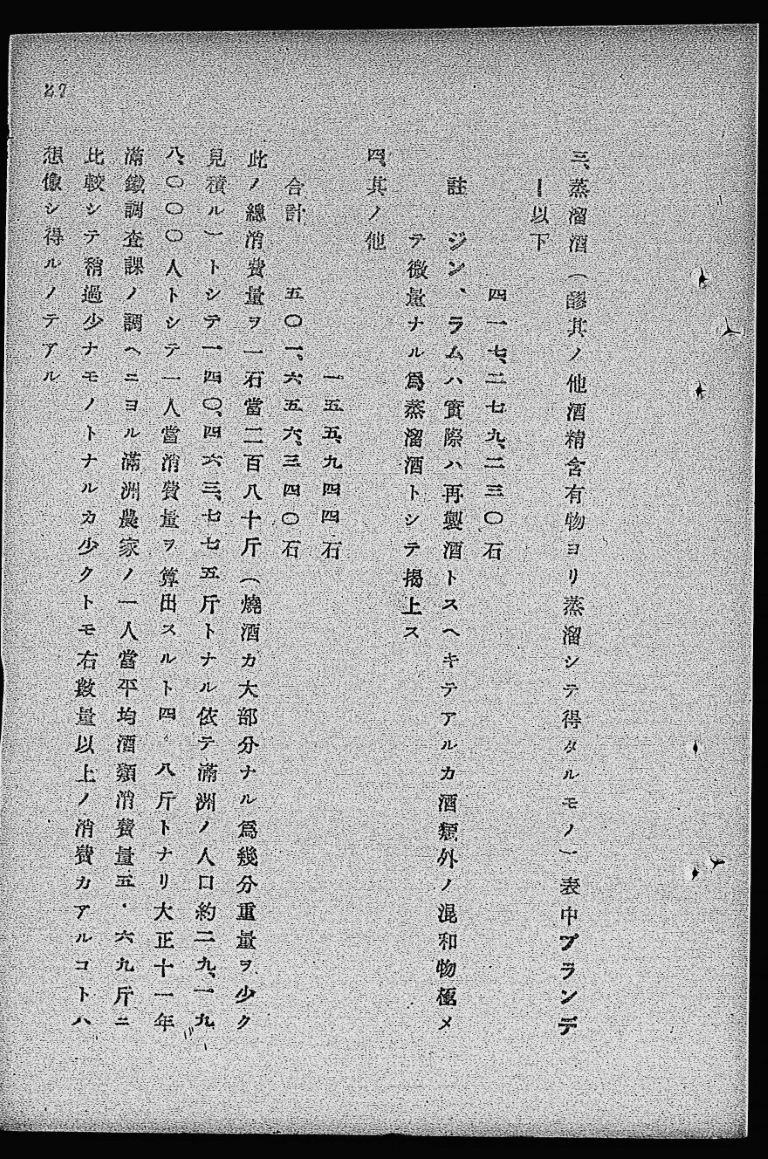 27
三、蒸溜酒（醪其ノ他酒精含有物ヨリ蒸溜シテ得タルモノ）表中ブランデ
ー以下
四一七、二七九、二三〇石
註　ジン、ラムハ實際ハ再製酒トスヘキテアルカ酒類外ノ混和物極メ
テ微量ナル爲蒸溜酒トシテ揭上ス
四、其ノ他
一五五、九四四石
合計　五〇一、六五六、三四〇石
此ノ總消費量ヲ一石當二百八十斤（燒酒カ大部分ナル爲幾分重量ヲ少ク
見積ル）トシテ一四〇、四六三、七七五斤トナル依テ滿洲ノ人口約二九、一九
八、〇〇〇人トシテ一人當消費量ヲ算出スルト四。八斤トナリ大正十一年
滿鐵調査課ノ調ヘニヨル滿洲農家ノ一人當平均酒類消費量五・六九斤ニ
比較シテ稍過少ナモノトナルカ少クトモ右數量以上ノ消費カアルコトハ
想像シ得ルノテアル